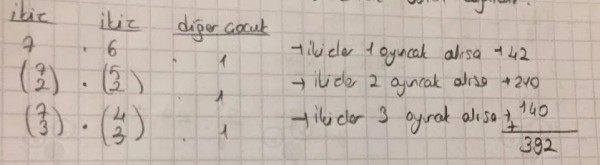 ikiz ikiz diğer çocuk
7 . 6 . 1 → ikizler 1 oyuncak alırsa → 42
(7 2) . (5 2) . 1 → ikizler 2 oyuncak alırsa → 210
(7 3) . (4 3) . 1 → ikizler 3 oyuncak alırsa → 140
+
392